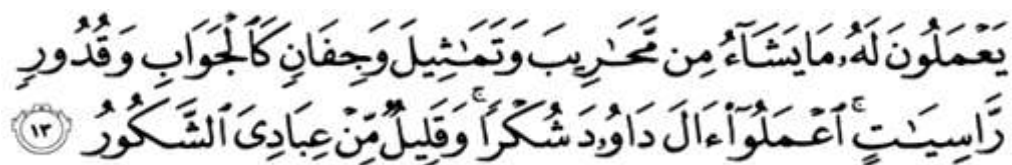 يَعْمَلُونَ لَهُۥ مَا يَشَآءُ مِن مَّحَٰرِيبَ وَتَمَٰثِيلَ وَجِفَانٍ كَٱلْجَوَابِ وَقُدُورٍ
رَّاسِيَٰتٍ ۚ ٱعْمَلُوٓا۟ ءَالَ دَاوُۥدَ شُكْرًا ۚ وَقَلِيلٌ مِّنْ عِبَادِىَ ٱلشَّكُورُ ١٣